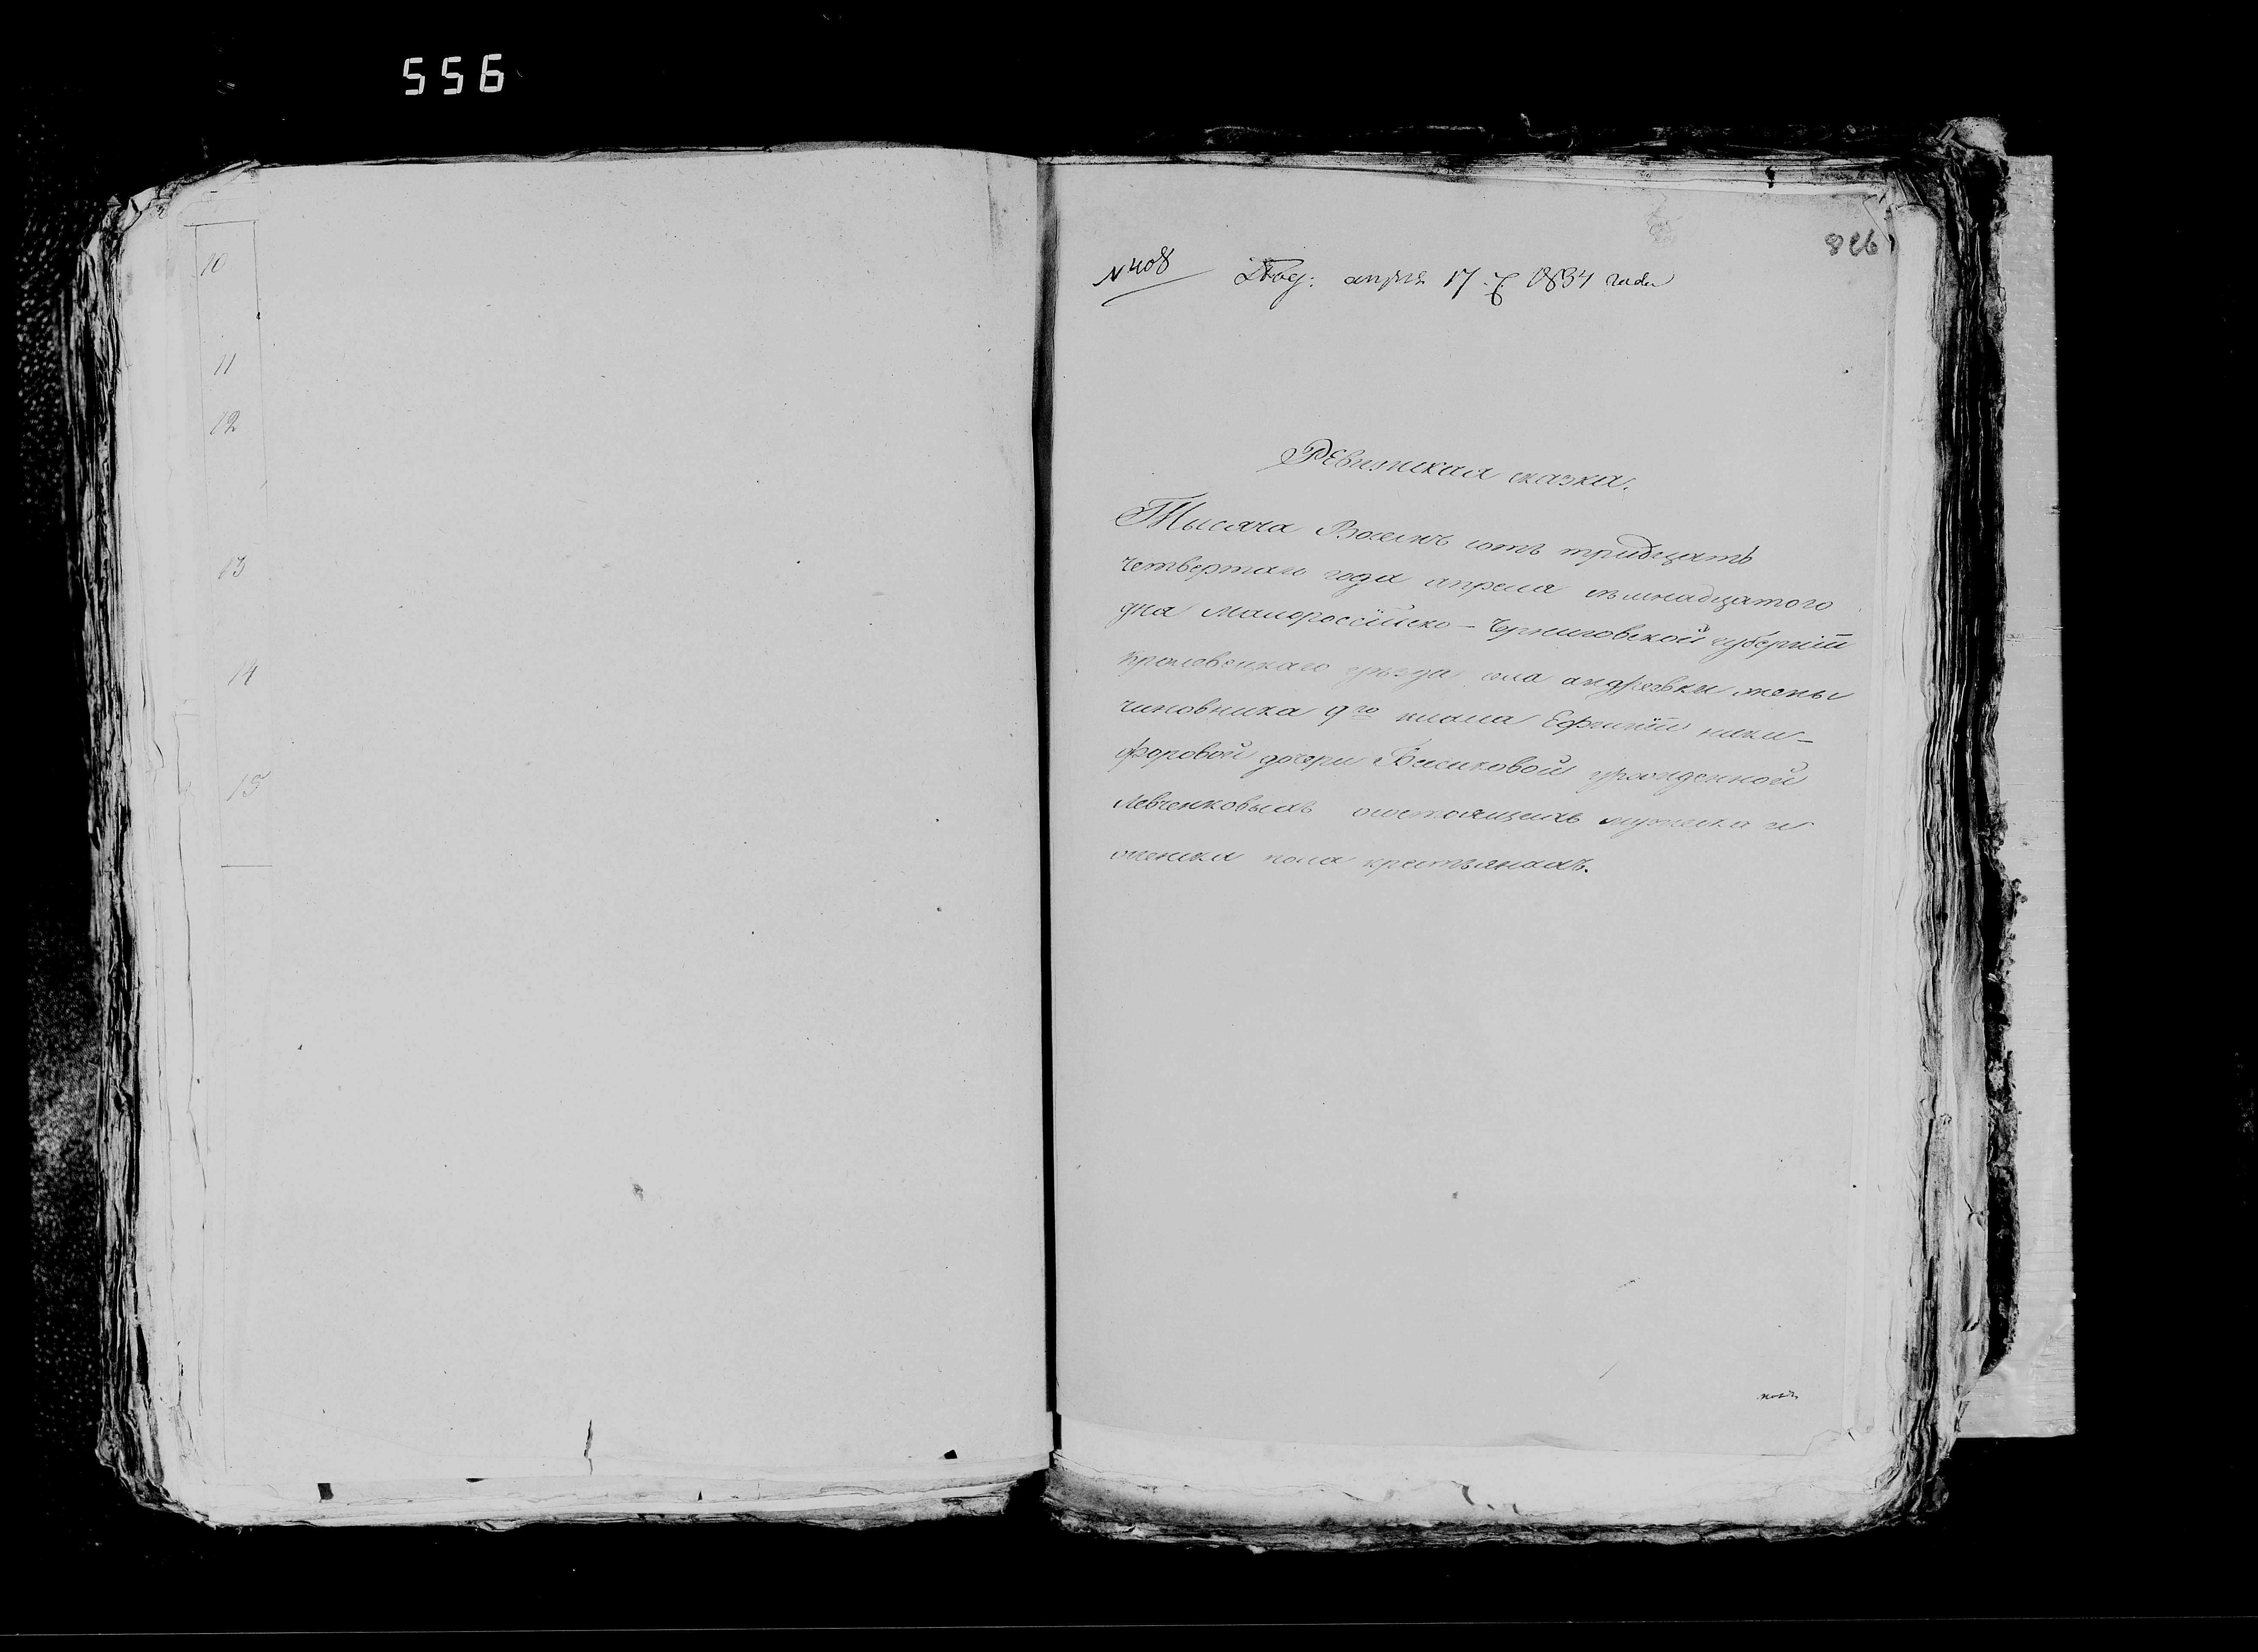 556
10
11
12
13
14
15
826
N 408 Под: апреля 17 1834 года
Ревижская сказка.
Тысяча Восемь сотъ тридцать
четвертаго года апреля семнадцатого
дня Малороссійско-Черниговской губерніи
Кролевецкаго уезда села андреевки жены
чиновника 9го класса Ефимїи ники-
форовой дочери урожденной
Левченковыхъ состоящихъ мужеска и
женска пола крестьянахъ.